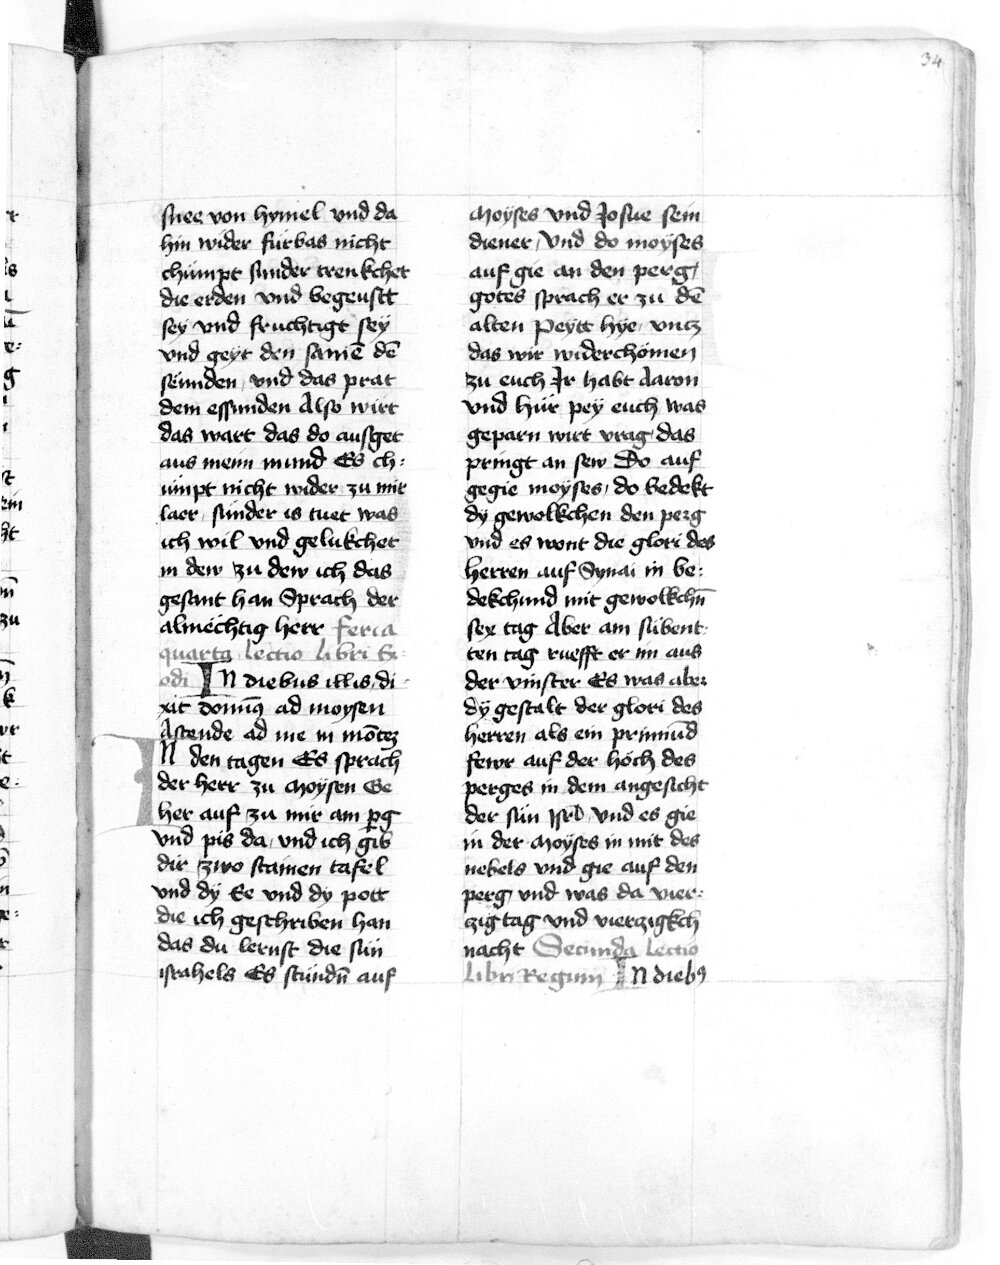 34
snee von hymel vnd da
hin wider fürbas nicht
chümpt sunder trenkchet
die erden vnd begeustt
sey vnd fruchtigt sey
vnd geyt den samē dē
seünden, vnd das prat
dem essunden Also wirt
das wart das do ausget
aus meim mund Es ch:
ümpt nicht wider zu mir
laer, sünder is tuet was
ich wil vnd gelukchet
in dew zu dew ich das
gesant han Sprach der
almechtig herr Feria
quarta lectio libri Ex:
odi IN diebus illis, di
xit domin9 ad moysen
Ascende ad me in mōtez
IN den tagen Es sprach
der herr zu Moÿsen Ge
her auf zu mir am pg
vnd pis da, vnd ich gib
dir zwo stainen tafel
vnd dÿ Ee vnd dy pott
die ich geschriben han
das du lernst die sün
israhels Es stündn̄ auf
Moÿses vnd Josue sein
diener, vnd do moÿses
auf gie an den perg,
gotes sprach er zu dē
alten Peÿtt hÿe, vncz
das wir widerchömen
zu euch Jr habt Aaron
vnd hür peÿ euch was
geparn wirt vrag das
pringt an sew Do auf
gegie moÿses, do bedekt
dÿ gewolkchen den perg
vnd es wont die glori des
herren auf Synai in be:
dekchund mit gewolkchn̄
sex tag Aber am sübent
ten tag ruefft er im aus
der vinster Es was aber
dÿ gestalt der glori des
herren als ein prinnūd
fewr auf der höch des
perges in dem angesicht
der sün Isrl, vnd es gie
in der Moÿses in mit des
nebels vnd gie auf den
perg vnd was da vier:
zig tag vnd vierzigkch
nacht Secunda lectio
libri Regum IN dieb9